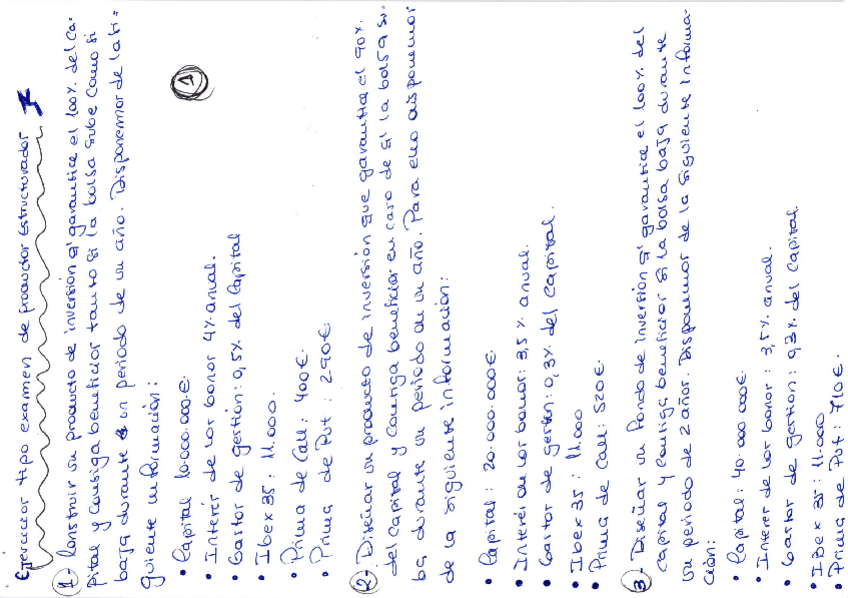 Ejercicios tipo examen de productos Estructurados
1
1- Construir un producto de inversión q' garantice el 100% del ca-
pital y consiga beneficios tanto si la bolsa sube como si
baja durante un periodo de un año. Disponemos de la si=
guiente información:
• Capital 10.000.000€.
• Interés de los bonos 4% anual.
• Gastos de gestión: 0,5% del Capital
• Ibex 35: 11.000.
• Prima de Call: 400€.
• Prima de Put: 290€
2- Diseñar un producto de inversión que garantice el 90%.
del capital y consiga beneficios en caso de si la bolsa su-
ba durante un periodo de un año. Para ello disponemos
de la siguiente información:
• Capital: 20.000.000€
• Interés de los bonos: 3,5% anual.
• Gastos de gestión: 0,3% del Capital.
• Ibex 35: 11.000
• Prima de Call: 520€.
3- Diseñar un Fondo de inversión q' garantice el 100% del
capital y consiga beneficios si la bolsa baja durante
un periodo de 2 años. Disponemos de la siguiente informa-
ción:
• Capital: 40.000.000€
• Interes de los bonos: 3,5% anual.
• Gastos de gestión: 0,3% del Capital.
• IBEX 35: 11.000
• Prima de Put: 710€.